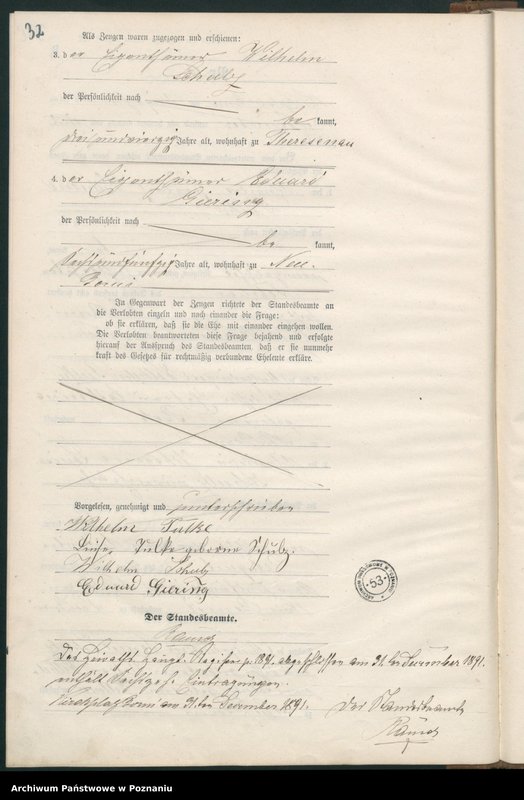 32
Als Zeugen waren zugezogen und erschienen:
3. der Eigenthümer Wilhelm
Schulz
der Persönlichkeit nach
be kannt,
dreiundvierzig Jahre alt, wohnhaft zu Theresenau
4. der Eigenthümer Eduard
Giering
der Persönlichkeit nach
be kannt,
sechsundfünfzig Jahre alt, wohnhaft zu Neu-
In Gegenwart der Zeugen richtete der Standesbeamte an
die Verlobten einzeln und nach einander die Frage:
ob sie erklären, daß sie die Ehe mit einander eingehen wollen.
Die Verlobten beantworteten diese Frage bejahend und erfolgte
hierauf der Ausspruch des Standesbeamten, daß er sie nunmehr
kraft des Gesetzes für rechtmäßig verbundene Eheleute erkläre.
Vorgelesen, genehmigt und unterschrieben
Wilhelm Tulke
Tulke geborne Schulz.
Wilhelm Schulz
Eduard Giering
Der Standesbeamte.
Das Heiraths Haupt Register p. 1891. abgeschlossen am 31ten Dezember 1891.
enthält Eintragungen.
am 31ten Dezember 1891. Der Standesbeamte
53
Archiwum Państwowe w Poznaniu